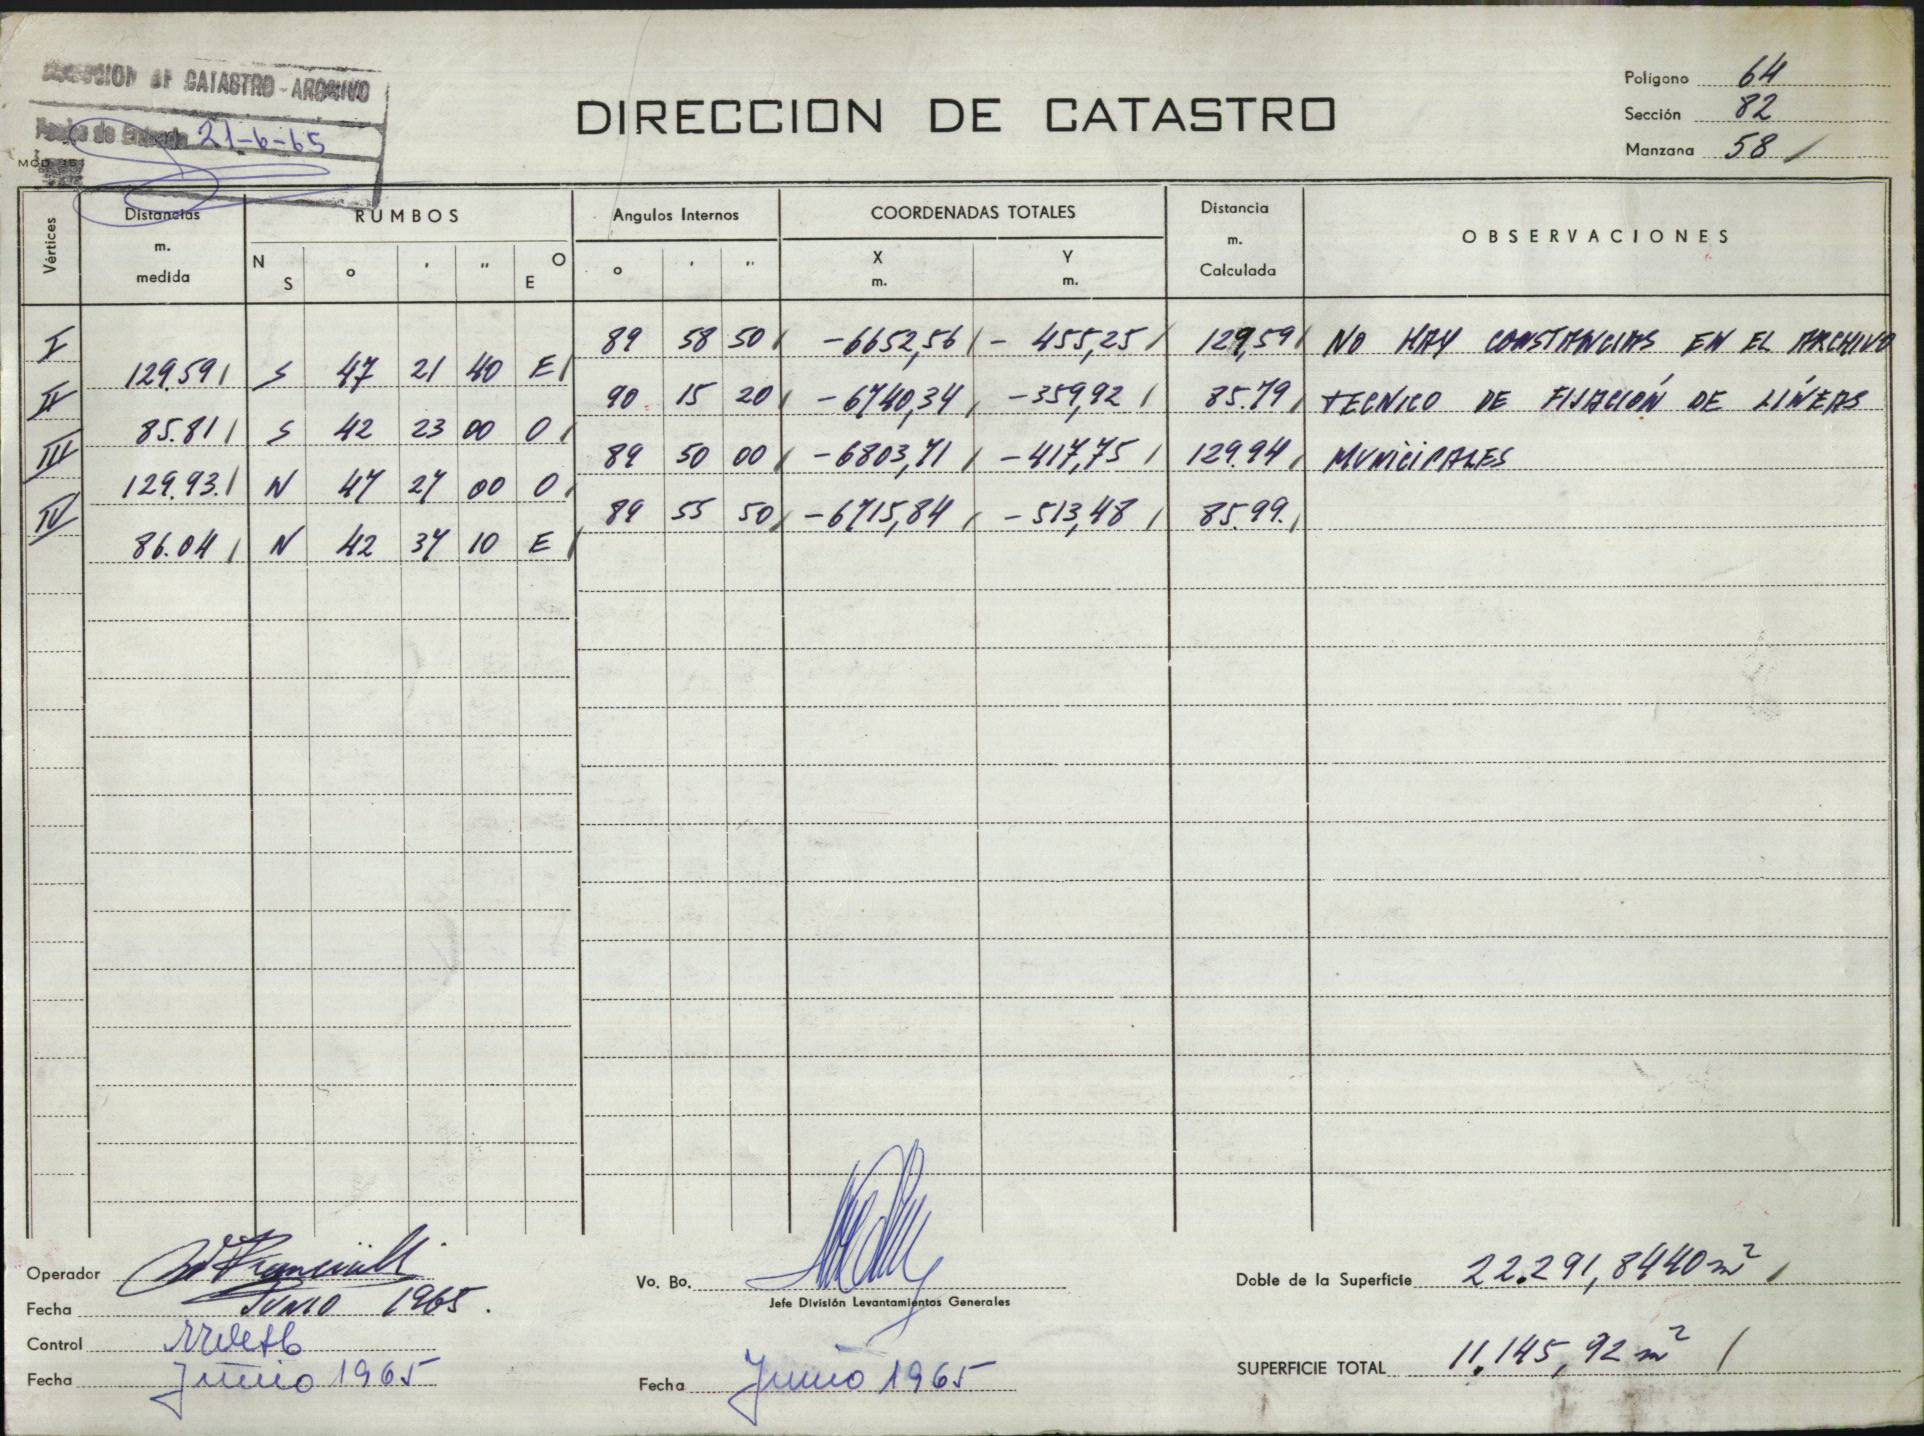 DIRECCION DE CATASTRO - ARCHIVO
Fecha de Entrada 21-6-65
DIRECCION DE CATASTRO
Polígono 64
Sección 82
Manzana 58 /
Vértices
Distancias m. medida
RUMBOS
N S o ' " O E
Angulos Internos
o ' "
COORDENADAS TOTALES
X m. Y m.
Distancia m. Calculada
OBSERVACIONES
I 89 58 50 / -6652,56 / - 455,25 / 129,59 / NO HAY CONSTANCIAS EN EL ARCHIVO
129.59 / S 47 21 40 E /
II 90 15 20 / -6740,34 / -359,92 / 85.79 / TECNICO DE FIJACIÓN DE LÍNEAS
85.81 / S 42 23 00 O /
III 89 50 00 / -6803,71 / -417,75 / 129.94 / MUNICIPALES
129.93. / N 47 27 00 O /
IV 89 55 50 / -6715,84 / -513,48 / 85.99. /
86.04 / N 42 37 10 E /
Operador
Fecha JUNIO 1965.
Control
Fecha Junio 1965
Vo. Bo.
Jefe División Levantamientos Generales
Fecha Junio 1965
Doble de la Superficie 22.291,8440 m² /
SUPERFICIE TOTAL 11.145,92 m² /